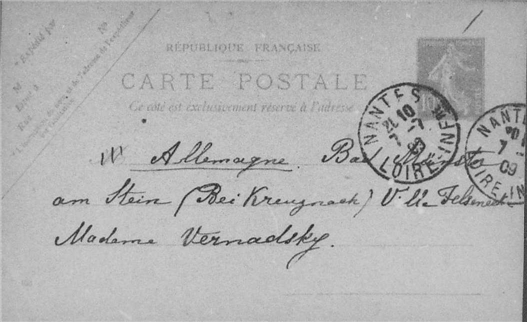 RÉPUBLIQUE FRANÇAISE
CARTE POSTALE
Ce côté est exclusivement réservé à l'adresse
NANTES
LOIRE-INFRE
09
NANTES
7
09
LOIRE-IN
Allemagne. Bad Münster
am Stein (Bei Kreuznach) Villa Felseneck
Madame Vernadsky.